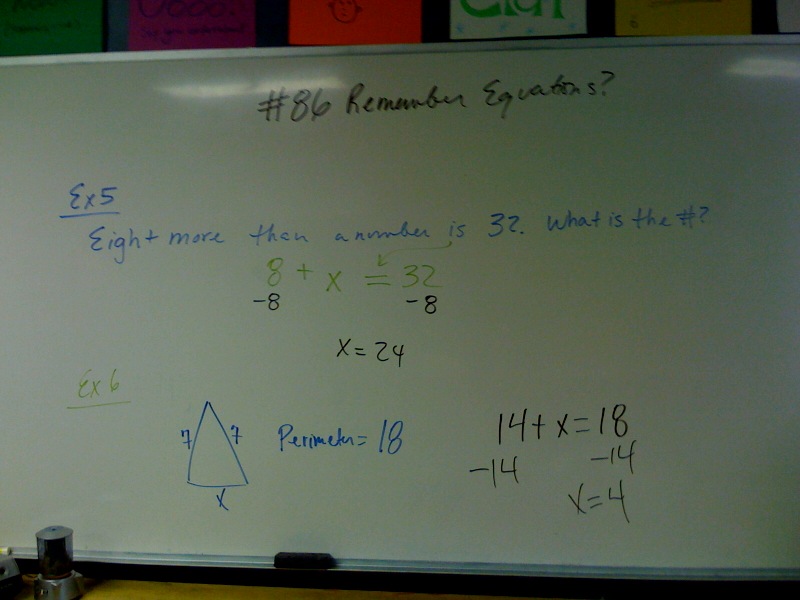 #86 Remember Equations?
Ex 5
Eight more than a number is 32. What is the #?
8 + x = 32
-8 -8
x = 24
Ex 6
7 7
x
Perimeter = 18
14 + x = 18
-14 -14
x = 4